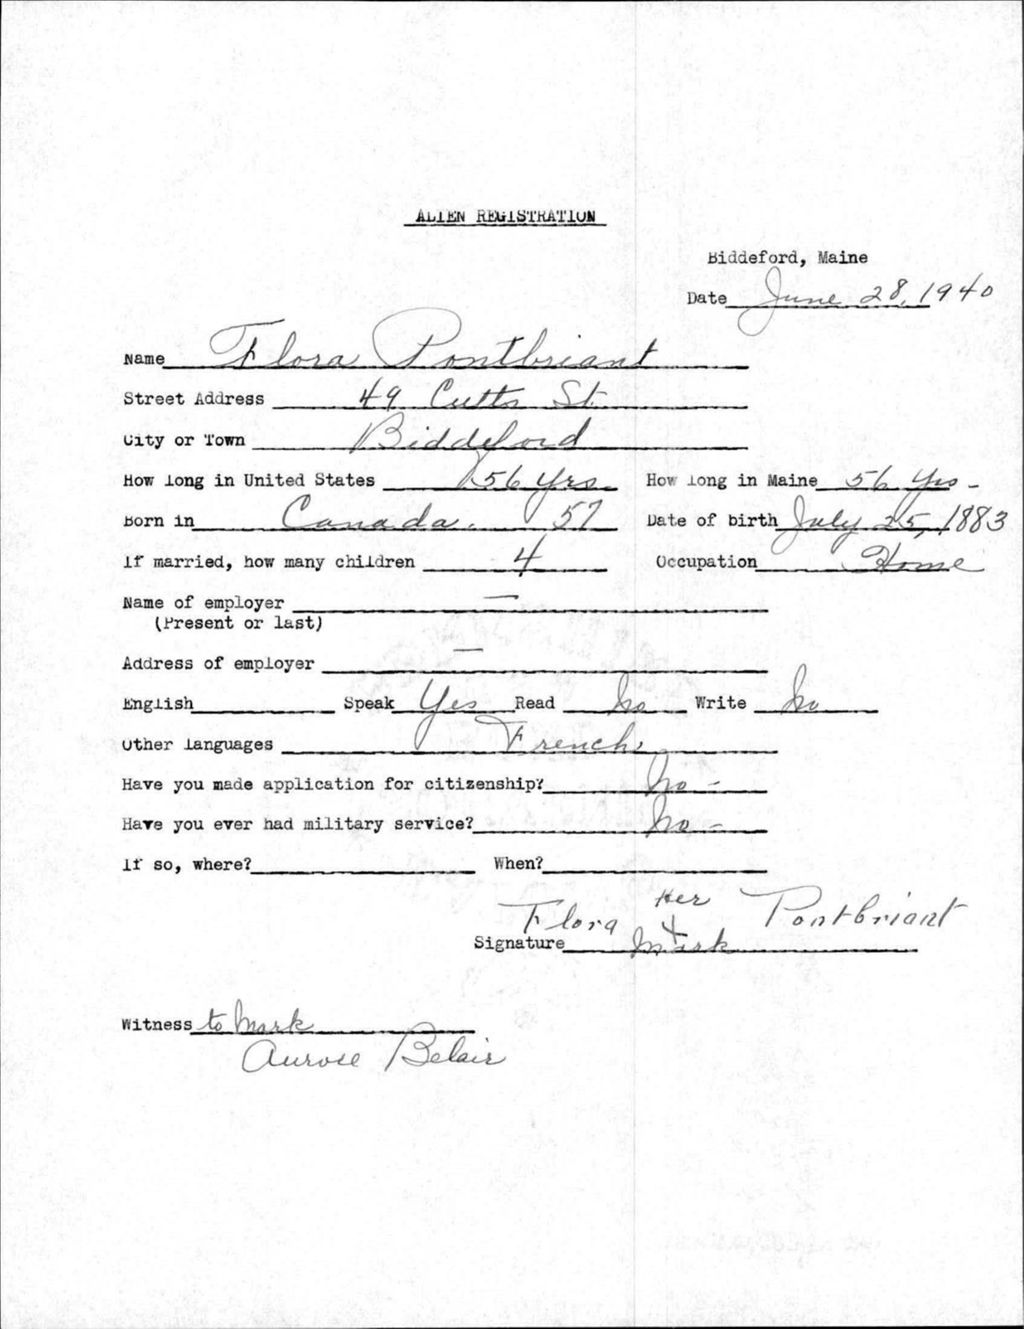 ALIEN REGISTRATION
Biddeford, Maine
Date June 28, 1940
Name Flora Pontbriant
Street Address 49 Cutts St.
City or Town Biddeford
How long in United States 56 Yrs. How long in Maine 56 Yrs -
Born in Canada. 57 Date of birth July 25, 1883
If married, how many children 4 Occupation Home
Name of employer —
(Present or last)
Address of employer —
English Speak Yes Read No Write No
Other languages French
Have you made application for citizenship? No -
Have you ever had military service? No -
If so, where? When?
Her
Flora X Pontbriant
Signature Mark
Witness to Mark
Aurose Belair